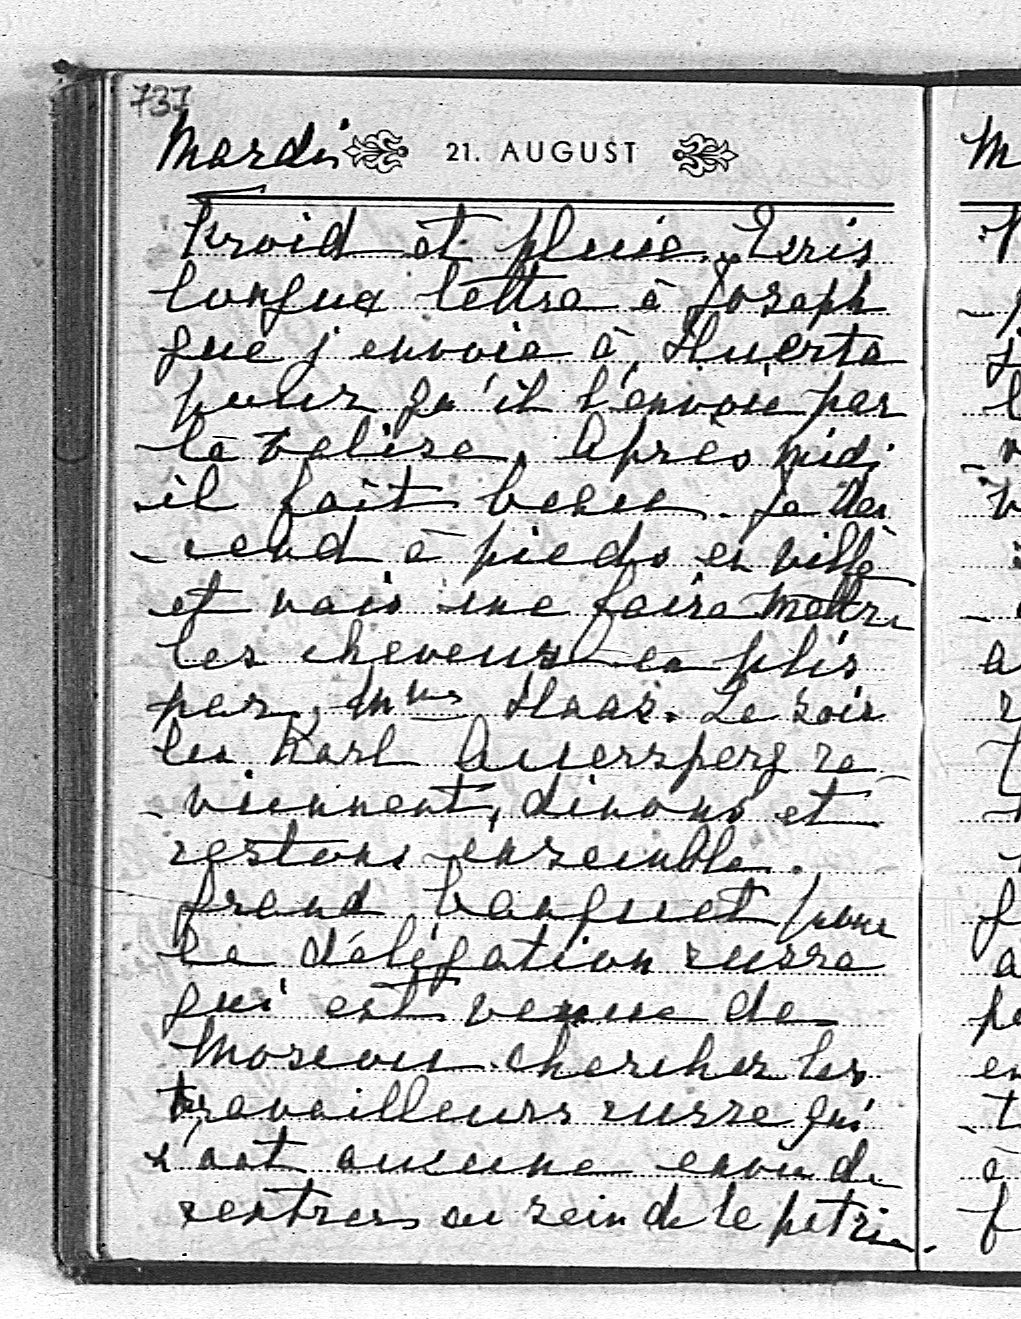 737
Mardi 21. AUGUST
Froid et pluie. Ecris
longue lettre à Joseph
que j'envoie à Huerta
pour qu'il l'envoie par
la valise. Après midi
il fait beau. Je des
cend à pieds en ville
et vais me faire mettre
les cheveux en plis
par Mme Haas. Le soir
les Karl Auersperg re
viennent, dinons et
restons ensemble.
Grand banquet pour
la délégation russe
qui est venue de
Moscou chercher les
travailleurs russe qui
n'ont aucune envie de
rentrer au sein de la patrie.